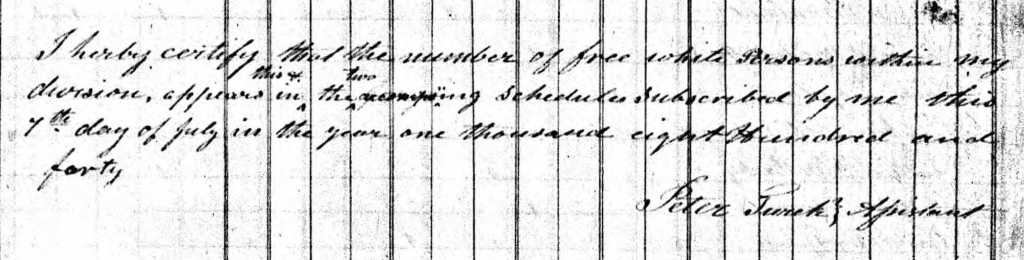 I herby certify that the number of free white Persons within my
division, appears in this & the two accompaning Schedules Subscribed by me this
7th day of July in the year one thousand eight Hundred and
forty
Peter Assistant